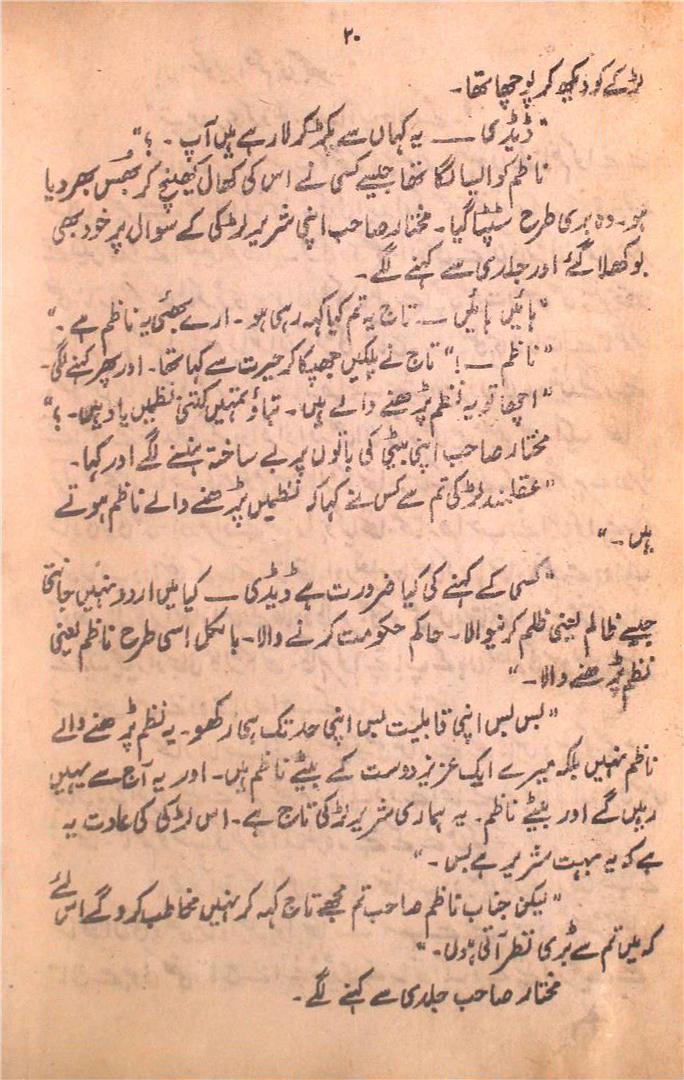 ۲۰
لڑکے کو دیکھ کر پوچھا تھا۔
"ڈیڈی — یہ کہاں سے پکڑ کر لا رہے ہیں آپ۔ ؟"
ناظم کو ایسا لگا تھا جیسے کسی نے اس کی کھال کھینچ کر بھُس بھر دیا
ہو۔ وہ بری طرح سٹپٹا گیا۔ مختار صاحب اپنی شریر لڑکی کے سوال پر خود بھی
بوکھلا گئے اور جلدی سے کہنے لگے۔
"ہائیں ہائیں — تاج یہ تم کیا کہہ رہی ہو۔ ارے بھئی یہ ناظم ہے۔"
"ناظم — !" تاج نے پلکیں جھپکا کر حیرت سے کہا تھا۔ اور پھر کہنے لگی۔
"اچھا تو یہ نظم پڑھنے والے ہیں۔ بتاؤ تمہیں کتنی نظمیں یاد ہیں۔ ؟"
مختار صاحب اپنی بیٹی کی باتوں پر بے ساختہ ہنسنے لگے اور کہا۔
"عقلمند لڑکی تم سے کس نے کہا کہ نظمیں پڑھنے والے ناظم ہوتے
ہیں۔"
"کسی کے کہنے کی کیا ضرورت ہے ڈیڈی — کیا میں اردو نہیں جانتی
جیسے ظالم یعنی ظلم کرنیوالا۔ حاکم حکومت کرنے والا۔ بالکل اسی طرح ناظم یعنی
نظم پڑھنے والا۔"
"بس بس اپنی قابلیت بس اپنی حد تک ہی رکھو۔ یہ نظم پڑھنے والے
ناظم نہیں بلکہ میرے ایک عزیز دوست کے بیٹے ناظم ہیں۔ اور یہ آج سے یہیں
رہیں گے اور بیٹے ناظم۔ یہ ہماری شریر لڑکی تاج ہے۔ اس لڑکی کی عادت یہ
ہے کہ یہ بہت شریر ہے بس۔"
"لیکن جناب ناظم صاحب تم مجھے تاج کہہ کر نہیں مخاطب کرو گے اس لئے
کہ میں تم سے بڑی نظر آتی ہوں۔"
مختار صاحب جلدی سے کہنے لگے۔